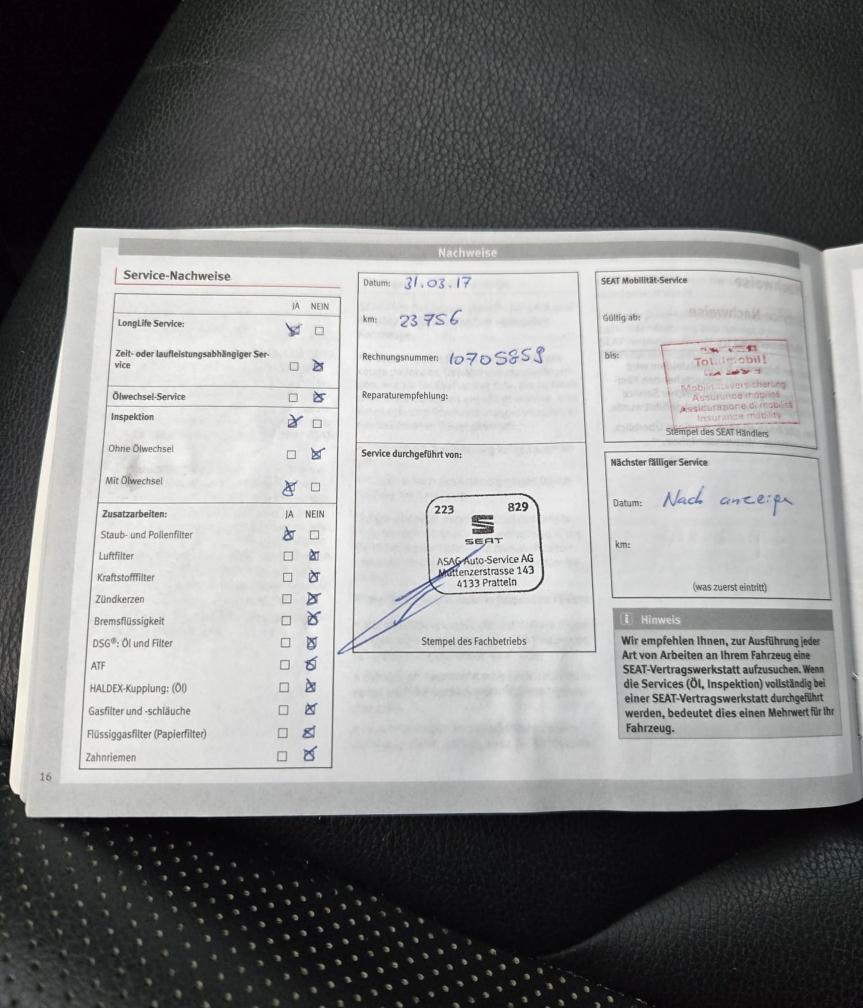 Nachweise
Service-Nachweise
JA NEIN
LongLife Service:
Zeit- oder laufleistungsabhängiger Ser-
vice
Ölwechsel-Service
Inspektion
Ohne Ölwechsel
Mit Ölwechsel
Zusatzarbeiten: JA NEIN
Staub- und Pollenfilter
Luftfilter
Kraftstofffilter
Zündkerzen
Bremsflüssigkeit
DSG®: Öl und Filter
ATF
HALDEX-Kupplung: (Öl)
Gasfilter und -schläuche
Flüssiggasfilter (Papierfilter)
Zahnriemen
16
Datum: 31.03.17
km: 23756
Rechnungsnummer: 10705859
Reparaturempfehlung:
Service durchgeführt von:
223 829
SEAT
ASAG Auto-Service AG
Muttenzerstrasse 143
4133 Pratteln
Stempel des Fachbetriebs
SEAT Mobilität-Service
Gültig ab:
bis:
Totalmobil!
Mobilitätsversicherung
Assurance mobilité
Assicurazione di mobilità
Insurance mobility
Stempel des SEAT Händlers
Nächster fälliger Service
Datum: Nach anzeige
km:
(was zuerst eintritt)
i Hinweis
Wir empfehlen Ihnen, zur Ausführung jeder
Art von Arbeiten an Ihrem Fahrzeug eine
SEAT-Vertragswerkstatt aufzusuchen. Wenn
die Services (Öl, Inspektion) vollständig bei
einer SEAT-Vertragswerkstatt durchgeführt
werden, bedeutet dies einen Mehrwert für Ihr
Fahrzeug.